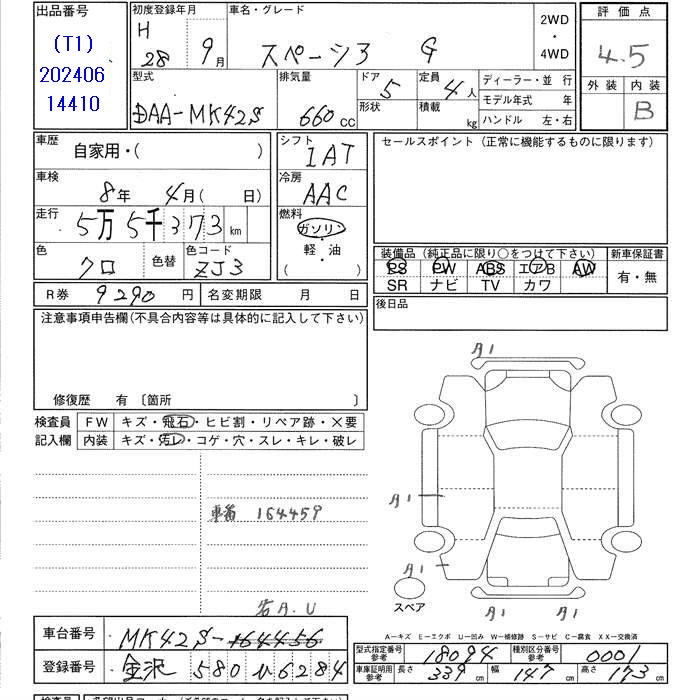 出品番号
(T1)
202406
14410
初度登録年月
H
28 9月
車名・グレード
スペーシア G
2WD
・
4WD
評価点
4.5
外装 内装
B
型式
DAA-MK42S
排気量
660 cc
ドア
5
形状
定員
4人
積載
kg
ディーラー・並 行
モデル年式 年
ハンドル 左・右
車歴
自家用・( )
車検
8年 4月( 日)
走行
5万5千373 km
色
クロ
色替
色コード
ZJ3
シフト
IAT
冷房
AAC
燃料
ガソリン
・
軽・油
( )
セールスポイント (正常に機能するものに限ります)
装備品 (純正品に限り○をつけて下さい)
PS PW ABS エアB AW
SR ナビ TV カワ
新車保証書
有・無
後日品
R券 9290 円
名変期限 月 日
注意事項申告欄(不具合内容等は具体的に記入して下さい)
修復歴 有 〔箇所 〕
検査員
記入欄
FW キズ・飛石・ヒビ割・リペア跡・×要
内装 キズ・汚レ・コゲ・穴・スレ・キレ・破レ
車番 164459
A1
A1
A1
A1
A1
スペア
A-キズ E-エクボ U-凹み W-補修跡 S-サビ C-腐食 XX-交換済
右A.U
車台番号 MK42S-164456
登録番号 金沢 580 い 6284
型式指定番号
参考
18094
種別区分番号
参考
0001
車庫証明用
参考
長さ 339 cm 幅 147 cm 高さ 173 cm